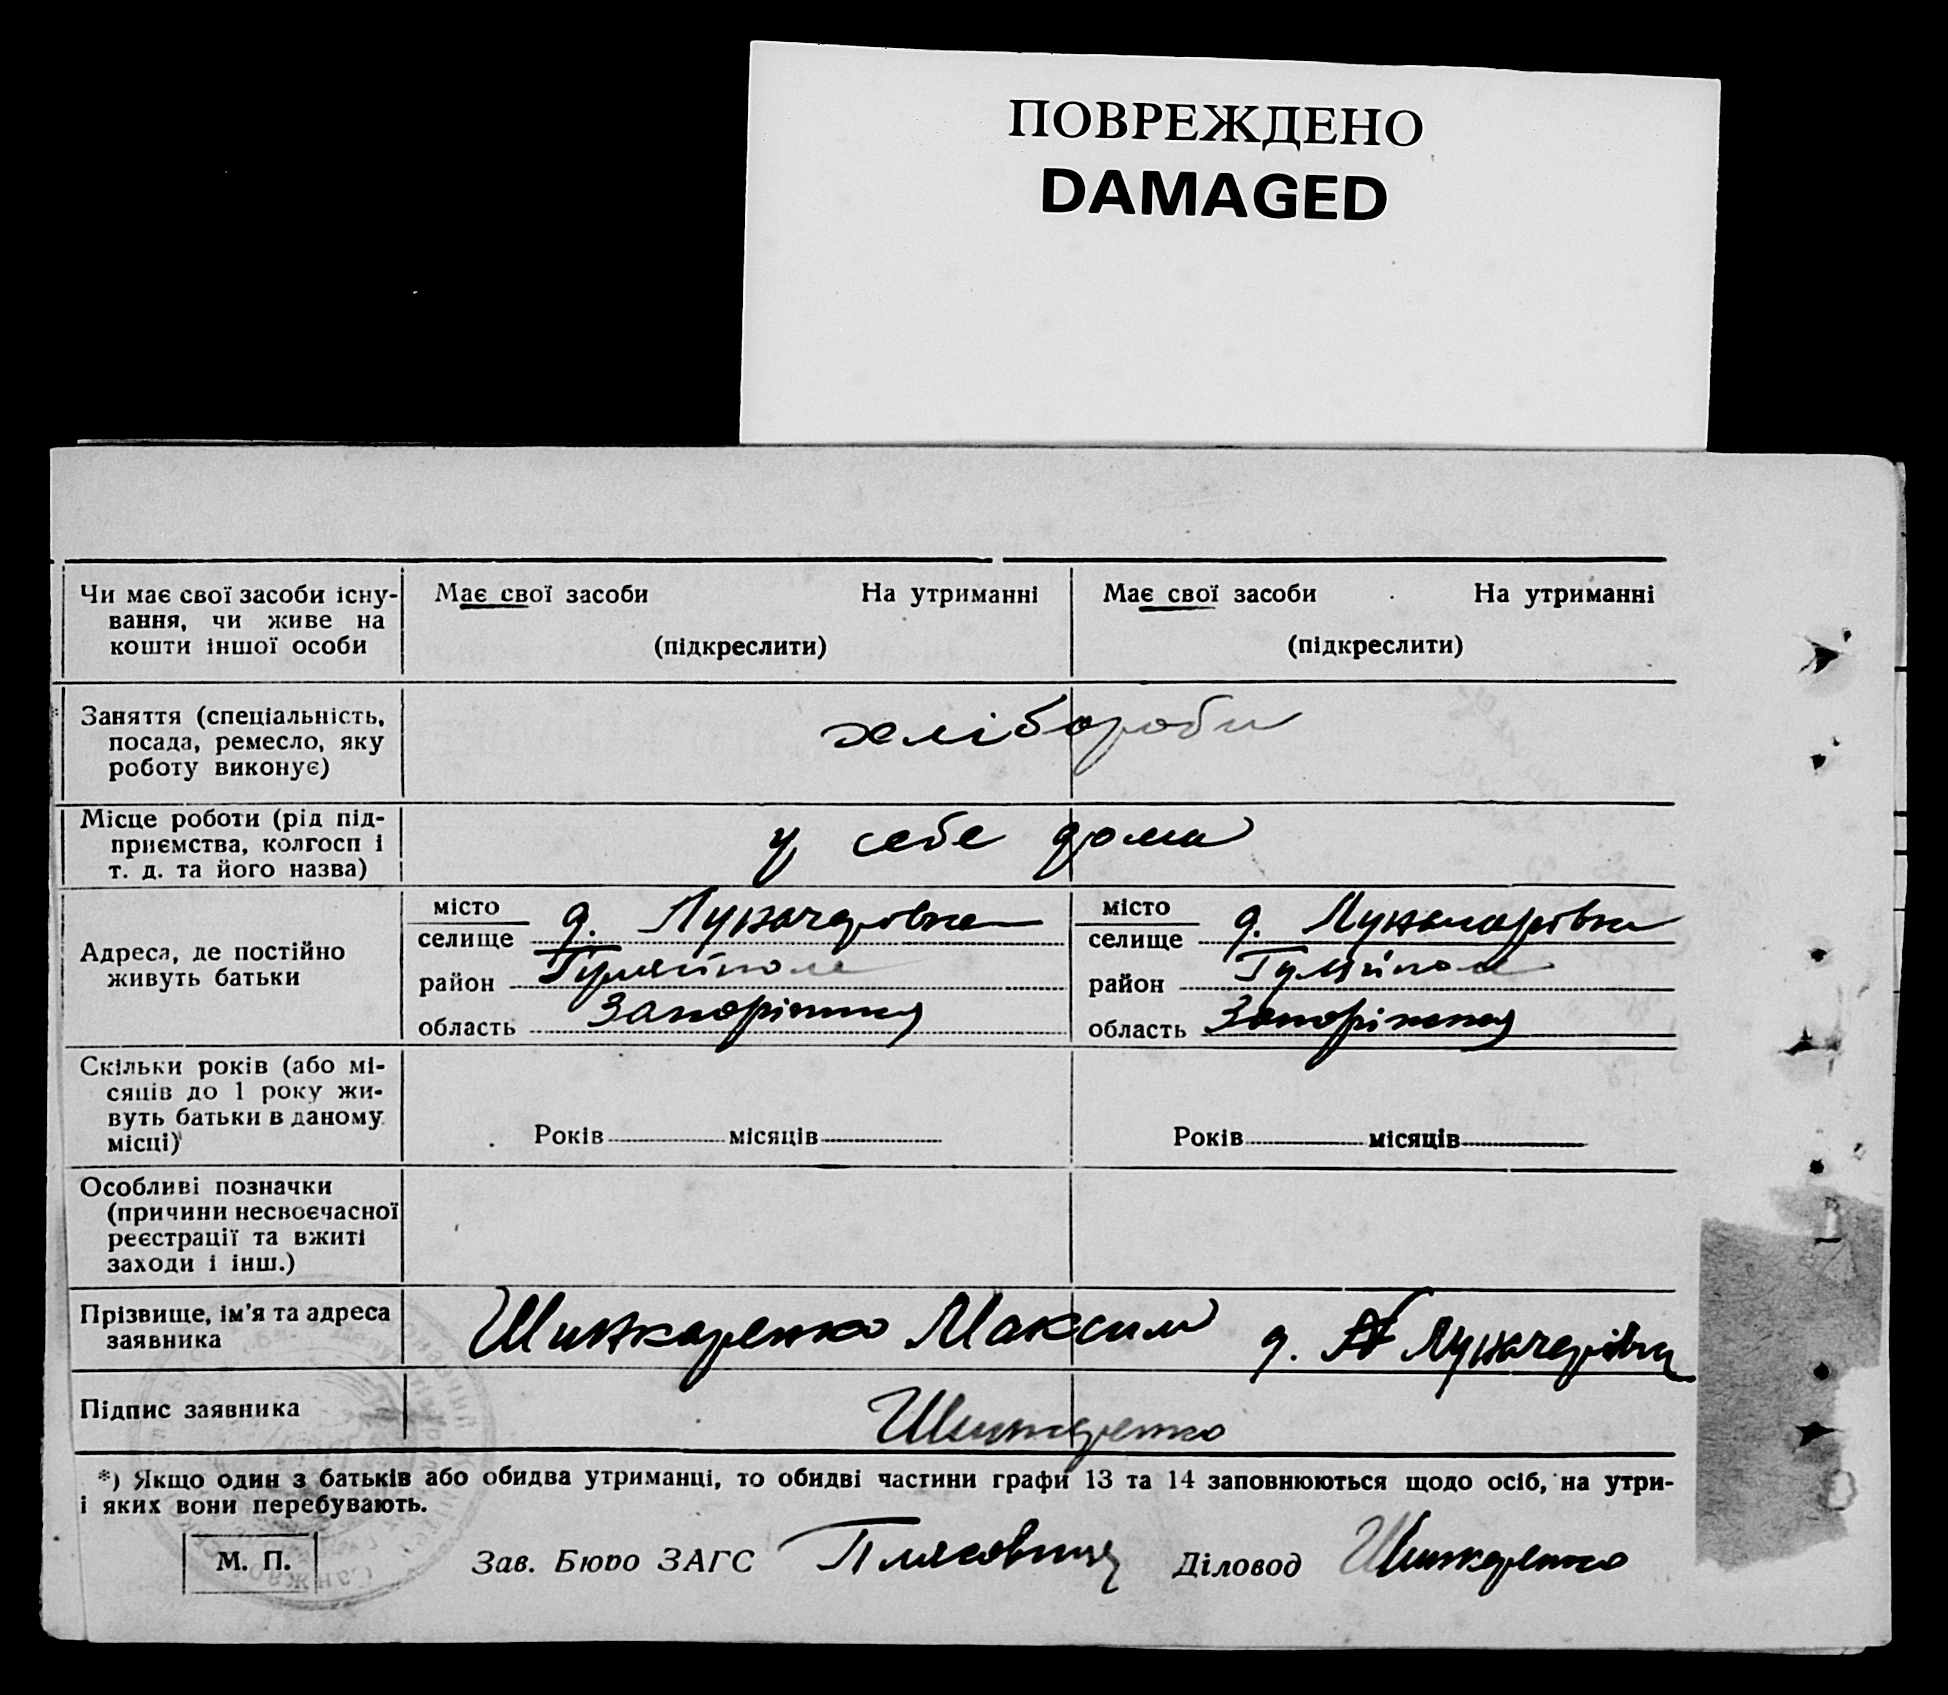 ПОВРЕЖДЕНО
DAMAGED
Чи має свої засоби існу-
вання, чи живе на
кошти іншої особи
Має свої засоби На утриманні
(підкреслити)
Має свої засоби На утриманні
(підкреслити)
Заняття (спеціальність,
посада, ремесло, яку
роботу виконує)
хлібороби
Місце роботи (рід під-
приємства, колгосп і
т. д. та його назва)
у себе дома
Адреса, де постійно
живуть батьки
місто
селище д. Луначарівка
район Гуляйполе
область Запоріжська
місто
селище д. Луначарівка
район Гуляйполе
область Запоріжська
Скільки років (або мі-
сяців до 1 року жи-
вуть батьки в даному
місці)
Років місяців
Років місяців
Особливі позначки
(причини несвоєчасної
реєстрації та вжиті
заходи і інш.)
Прізвище, ім'я та адреса
заявника
Шинкаренко Максим д. Луначарівка
Підпис заявника
Шинкаренко
*) Якщо один з батьків або обидва утриманці, то обидві частини графи 13 та 14 заповнюються щодо осіб, на утри-
і яких вони перебувають.
М. П.
Зав. Бюро ЗАГС Діловод Шинкаренко